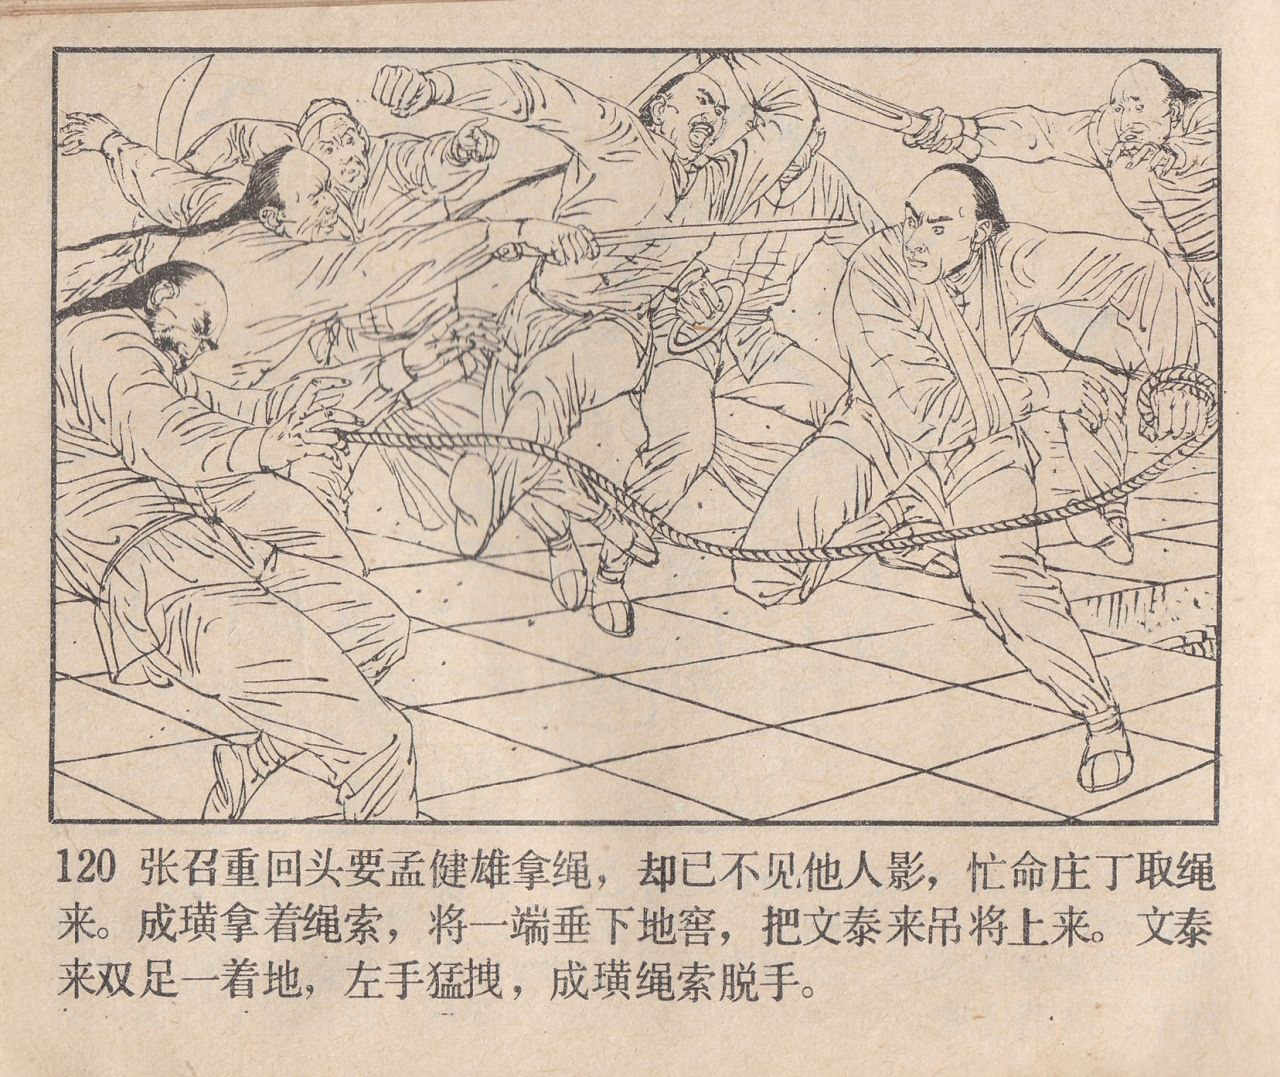 120 张召重回头要孟健雄拿绳，却已不见他人影，忙命庄丁取绳
来。成璜拿着绳索，将一端垂下地窖，把文泰来吊将上来。文泰
来双足一着地，左手猛拽，成璜绳索脱手。